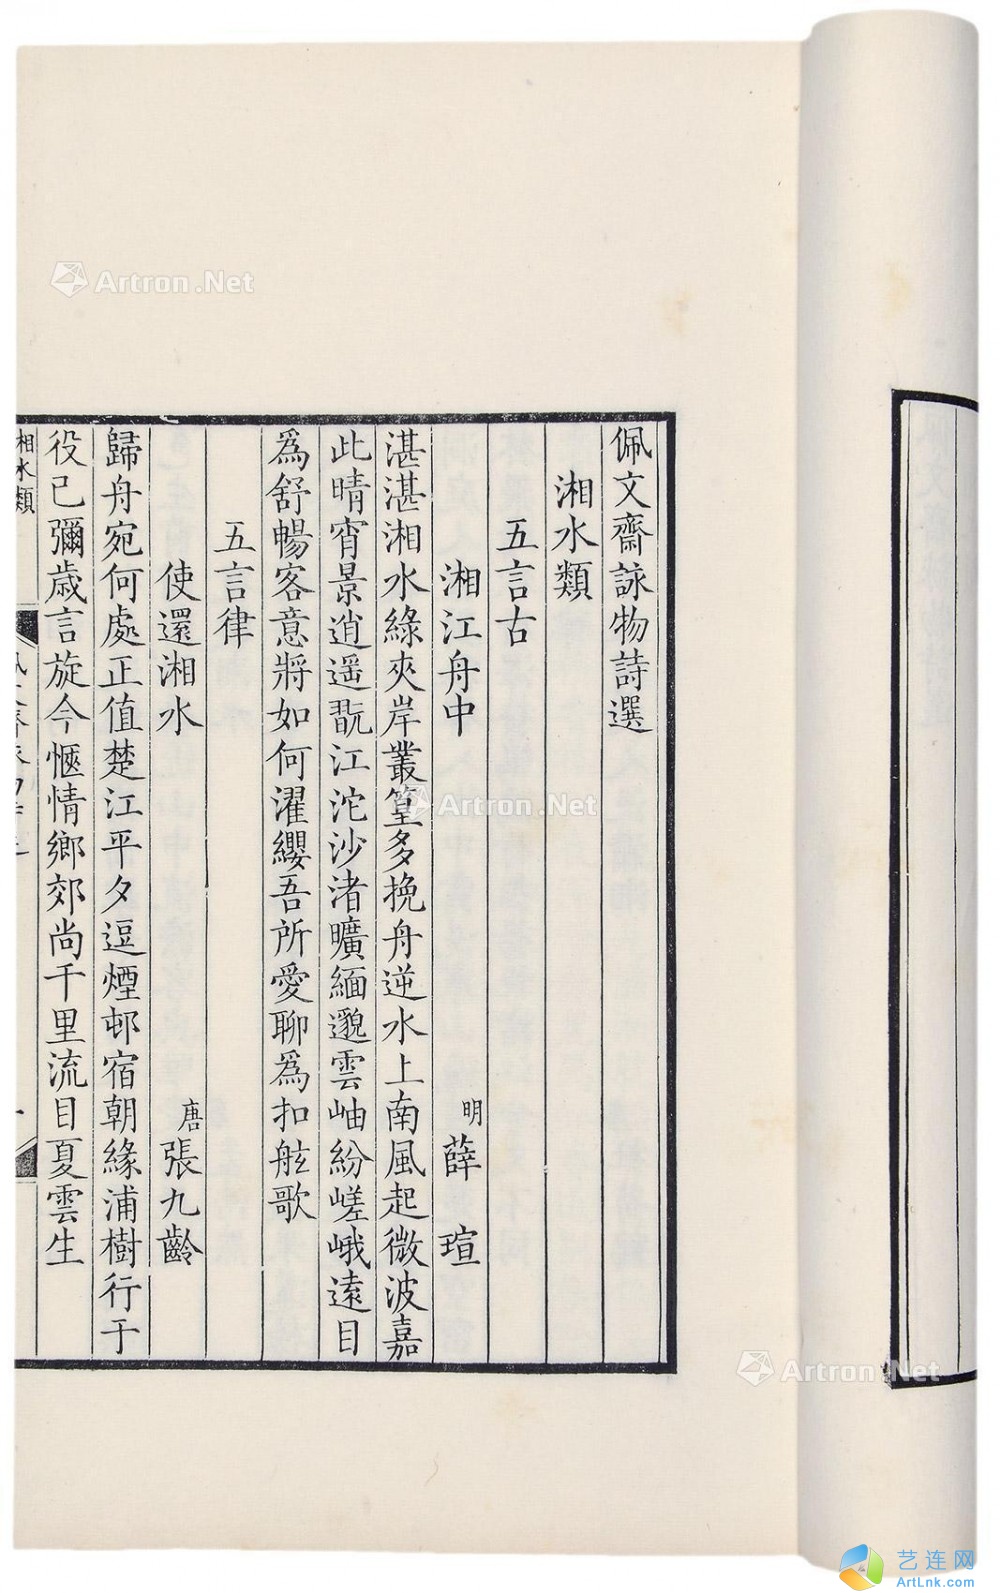 佩文齋詠物詩選
湘水類
五言古
湘江舟中 明 薛瑄
湛湛湘水綠夾岸叢篁多挽舟逆水上南風起微波嘉
此晴宵景逍遥翫江沱沙渚曠緬邈雲岫紛嵯峨遠目
爲舒暢客意將如何濯纓吾所愛聊爲扣舷歌
五言律
使還湘水 唐 張九齡
歸舟宛何處正值楚江平夕逗煙邨宿朝緣浦樹行于
役已彌歲言旋今愜情鄉郊尚千里流目夏雲生
湘水類
Artron.Net
Artron.Net
Artron.Net
艺连网
ArtLnk.com